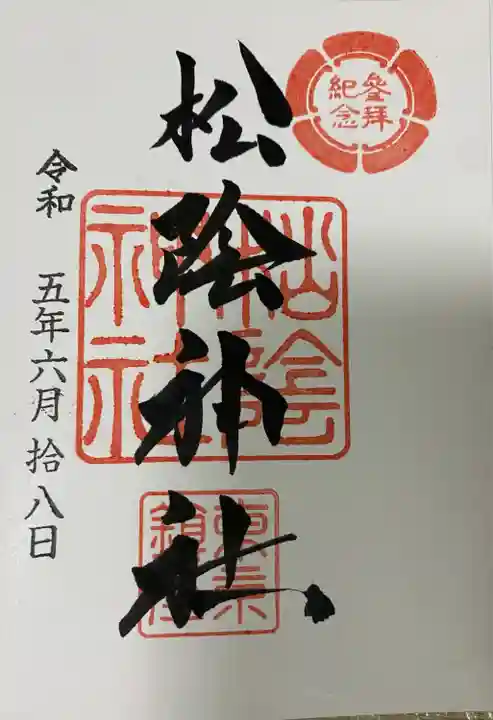 參拜
紀念
松陰神社
松陰
神社
東京
鎮座
令和 五年六月拾八日